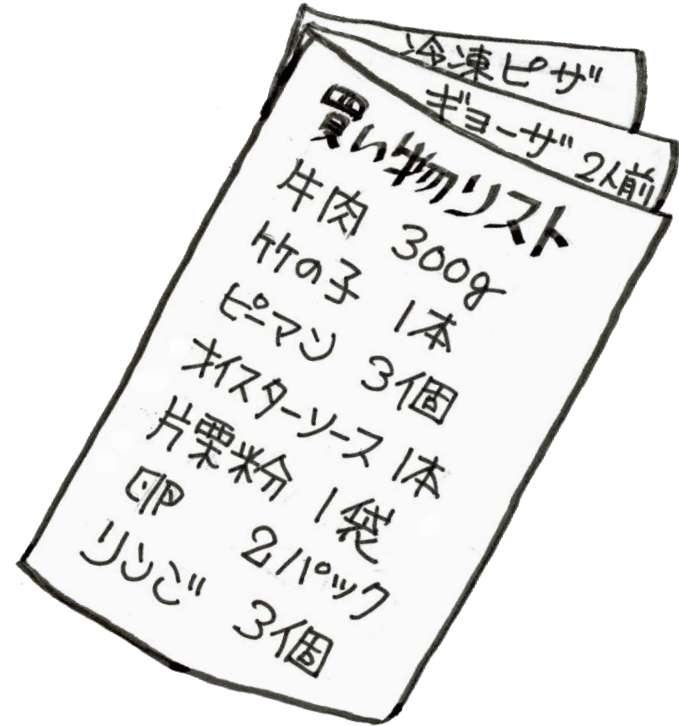 冷凍ピザ
ギョーザ 2人前
買い物リスト
牛肉 300g
竹の子 1本
ピーマン 3個
オイスターソース 1本
片栗粉 1袋
卵 2パック
リンご 3個